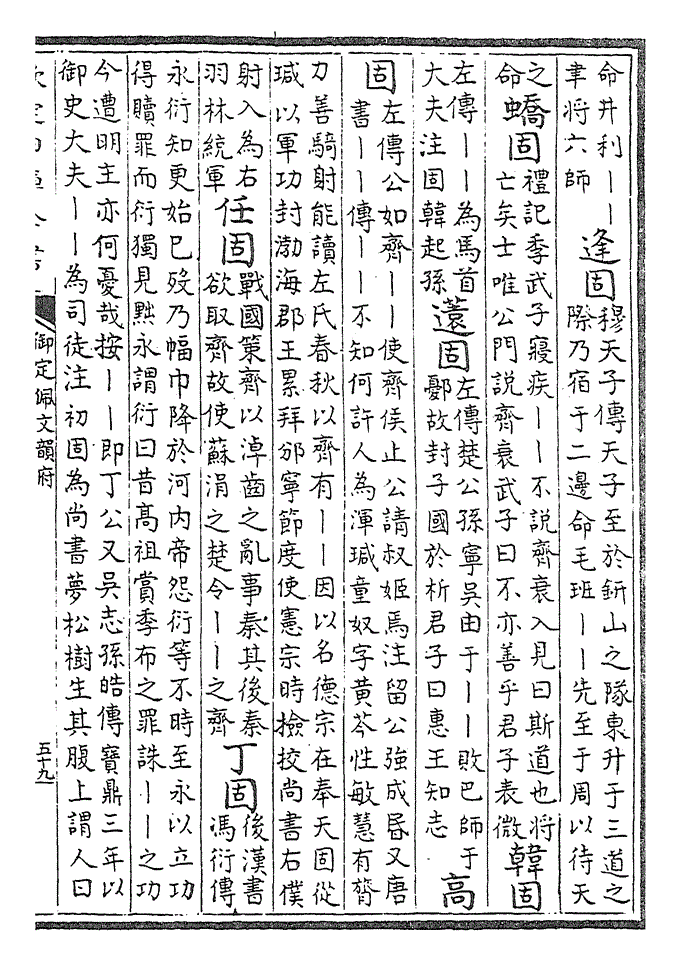 命井利丨丨
聿將六師
逢固
穆天子傳天子至於鈃山之隊東升于三道之
際乃宿于二邊命毛班丨丨先至于周以待天
之
命
蟜固
禮記季武子寢疾丨丨不說齊衰入見曰斯道也將
亡矣士唯公門說齊衰武子曰不亦善乎君子表微
韓固
左傳丨丨為馬首
大夫注固韓起孫
薳固
左傳楚公孫寧吳由于丨丨敗巴師于
鄾故封子國於析君子曰惠王知志
高
固
左傳公如齊丨丨使齊侯止公請叔姬焉注留公強成昏又唐
書丨丨傳丨丨不知何許人為渾瑊童奴字黃芩性敏慧有膂
力善騎射能讀左氏春秋以齊有丨丨因以名德宗在奉天固從
瑊以軍功封渤海郡王累拜邠寧節度使憲宗時撿挍尚書右僕
射入為右
羽林統軍
任固
戰國策齊以淖齒之亂事秦其後秦
欲取齊故使蘇涓之楚令丨丨之齊
丁固
後漢書
馮衍傳
永衍知更始已歿乃幅巾降於河內帝怨衍等不時至永以立功
得贖罪而衍獨見黜永謂衍曰昔高祖賞季布之罪誅丨丨之功
今遭明主亦何憂哉按丨丨即丁公又吳志孫皓傳寶鼎三年以
御史大夫丨丨為司徒注初固為尚書夢松樹生其腹上謂人曰
御定佩文韻府
五十九